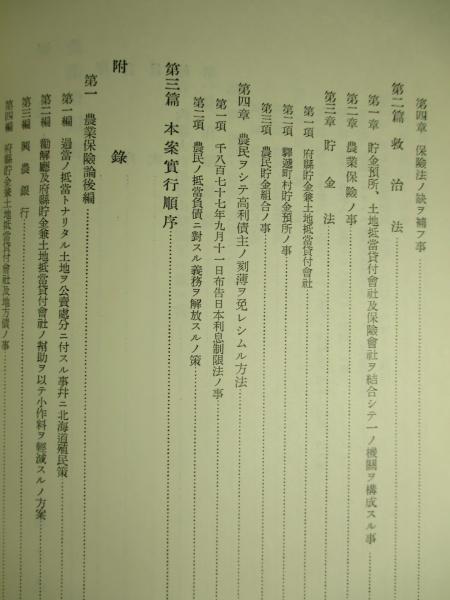 第四章 保險法ノ缺ヲ補フ事
第二篇 救治法
第一章 貯金預所、土地抵當貸付會社及保險會社ヲ結合シテ一ノ機關ヲ構成スル事
第二章 農業保險ノ事
第三章 貯金法
第一項 府縣貯金兼土地抵當貸付會社
第二項 驛遞町村貯金預所ノ事
第三項 農民貯金組合ノ事
第四章 農民ヲシテ高利債主ノ刻薄ヲ免レシムル方法
第一項 千八百七十七年九月十一日布告日本利息制限法ノ事
第二項 農民ノ抵當負債ニ對スル義務ヲ解放スルノ策
第三篇 本案實行順序
附錄
第一 農業保險論後編
第一編 過當ノ抵當トナリタル土地ヲ公賣處分ニ付スル事幷ニ北海道殖民策
第二編 勸解廳及府縣貯金兼土地抵當貸付會社ノ幇助ヲ以テ小作料ヲ輕減スルノ方案
第三編 興農銀行
第四編 府縣貯金兼土地抵當貸付會社及地方債ノ事